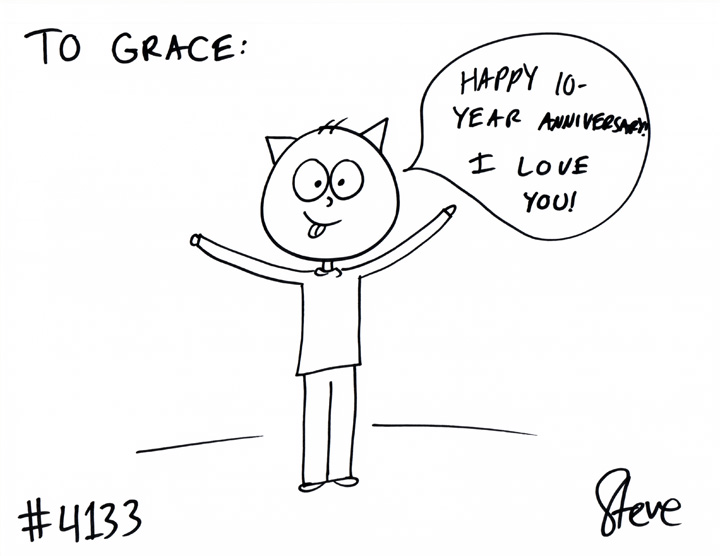 TO GRACE:
HAPPY 10-
YEAR ANNIVERSARY!
I LOVE
YOU!
#4133
Steve